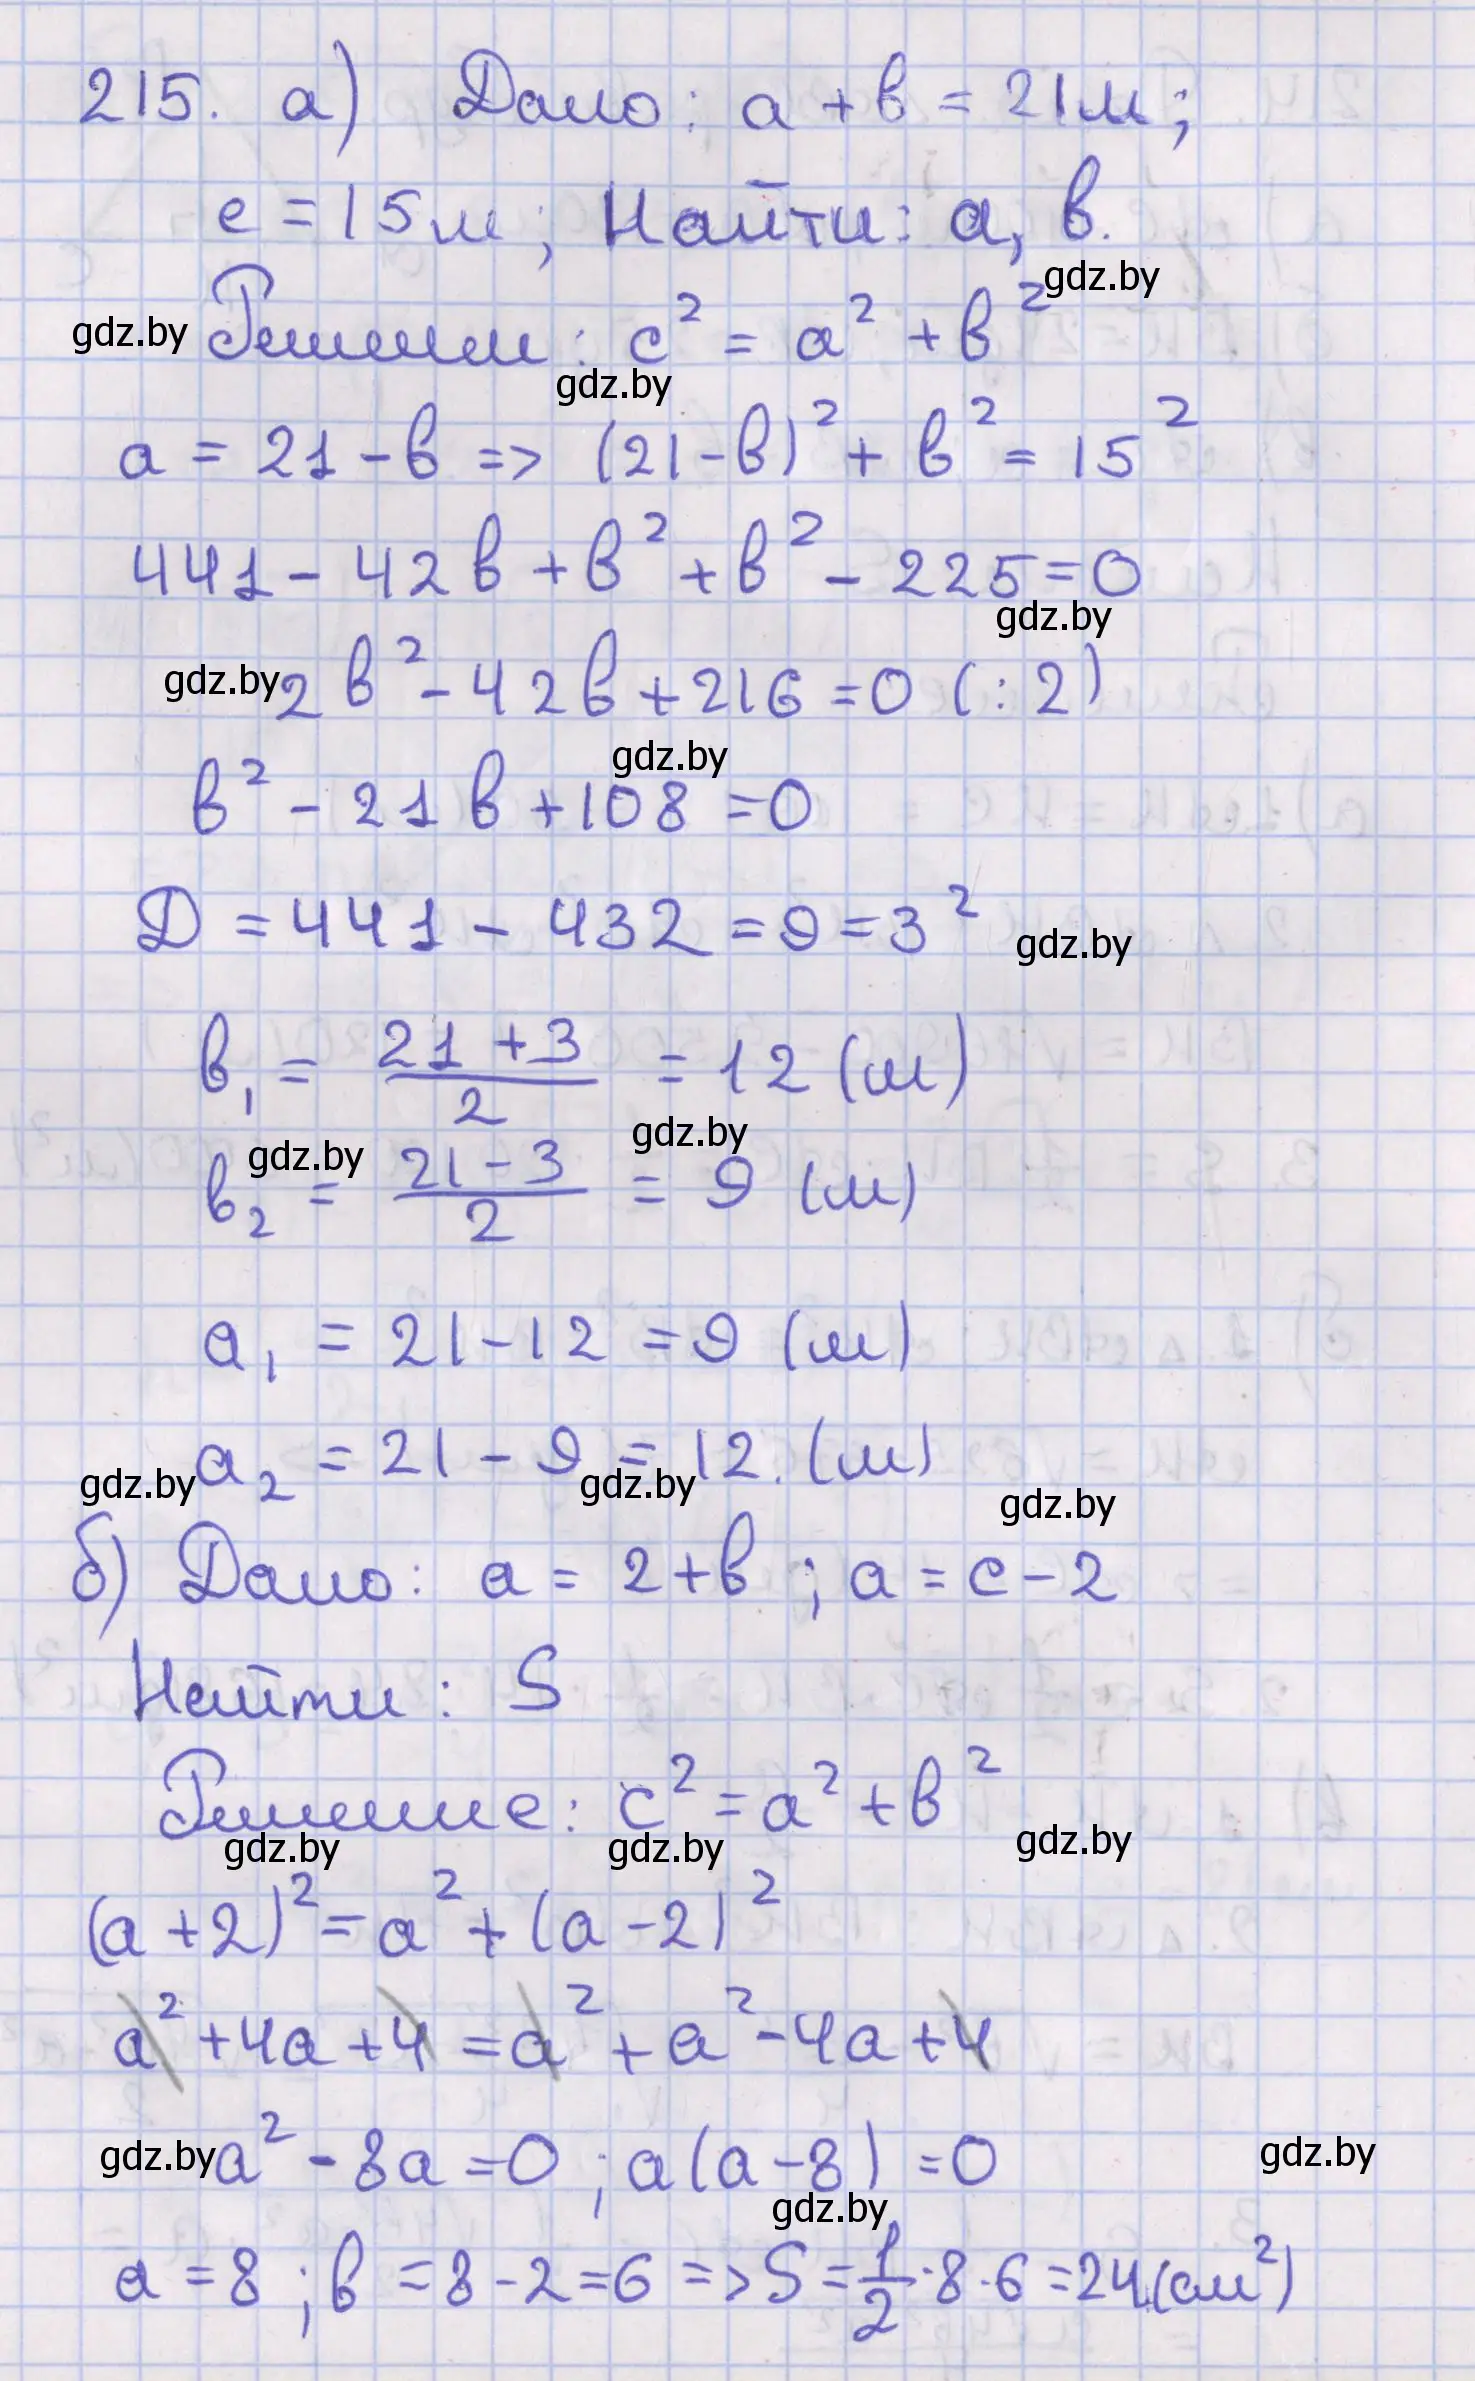 215. а) Дано: a + b = 21м;
c = 15м; Найти: a, b.
gdz.by
gdz.by Решение: c² = a² + b²
gdz.by
a = 21 - b => (21 - b)² + b² = 15²
441 - 42b + b² + b² - 225 = 0
gdz.by
gdz.by 2b² - 42b + 216 = 0 (: 2)
gdz.by
b² - 21b + 108 = 0
Д = 441 - 432 = 9 = 3²
gdz.by
b₁ = (21 + 3)/2 = 12 (м)
gdz.by gdz.by
b₂ = (21 - 3)/2 = 9 (м)
a₁ = 21 - 12 = 9 (м)
a₂ = 21 - 9 = 12. (м)
gdz.by gdz.by gdz.by
б) Дано: a = 2 + b ; a = c - 2
Найти: S
Решение: c² = a² + b²
gdz.by gdz.by gdz.by
(a + 2)² = a² + (a - 2)²
a² + 4a + 4 = a² + a² - 4a + 4
gdz.by a² - 8a = 0 ; a(a - 8) = 0 gdz.by
gdz.by
a = 8 ; b = 8 - 2 = 6 => S = 1/2 · 8 · 6 = 24 (см²)